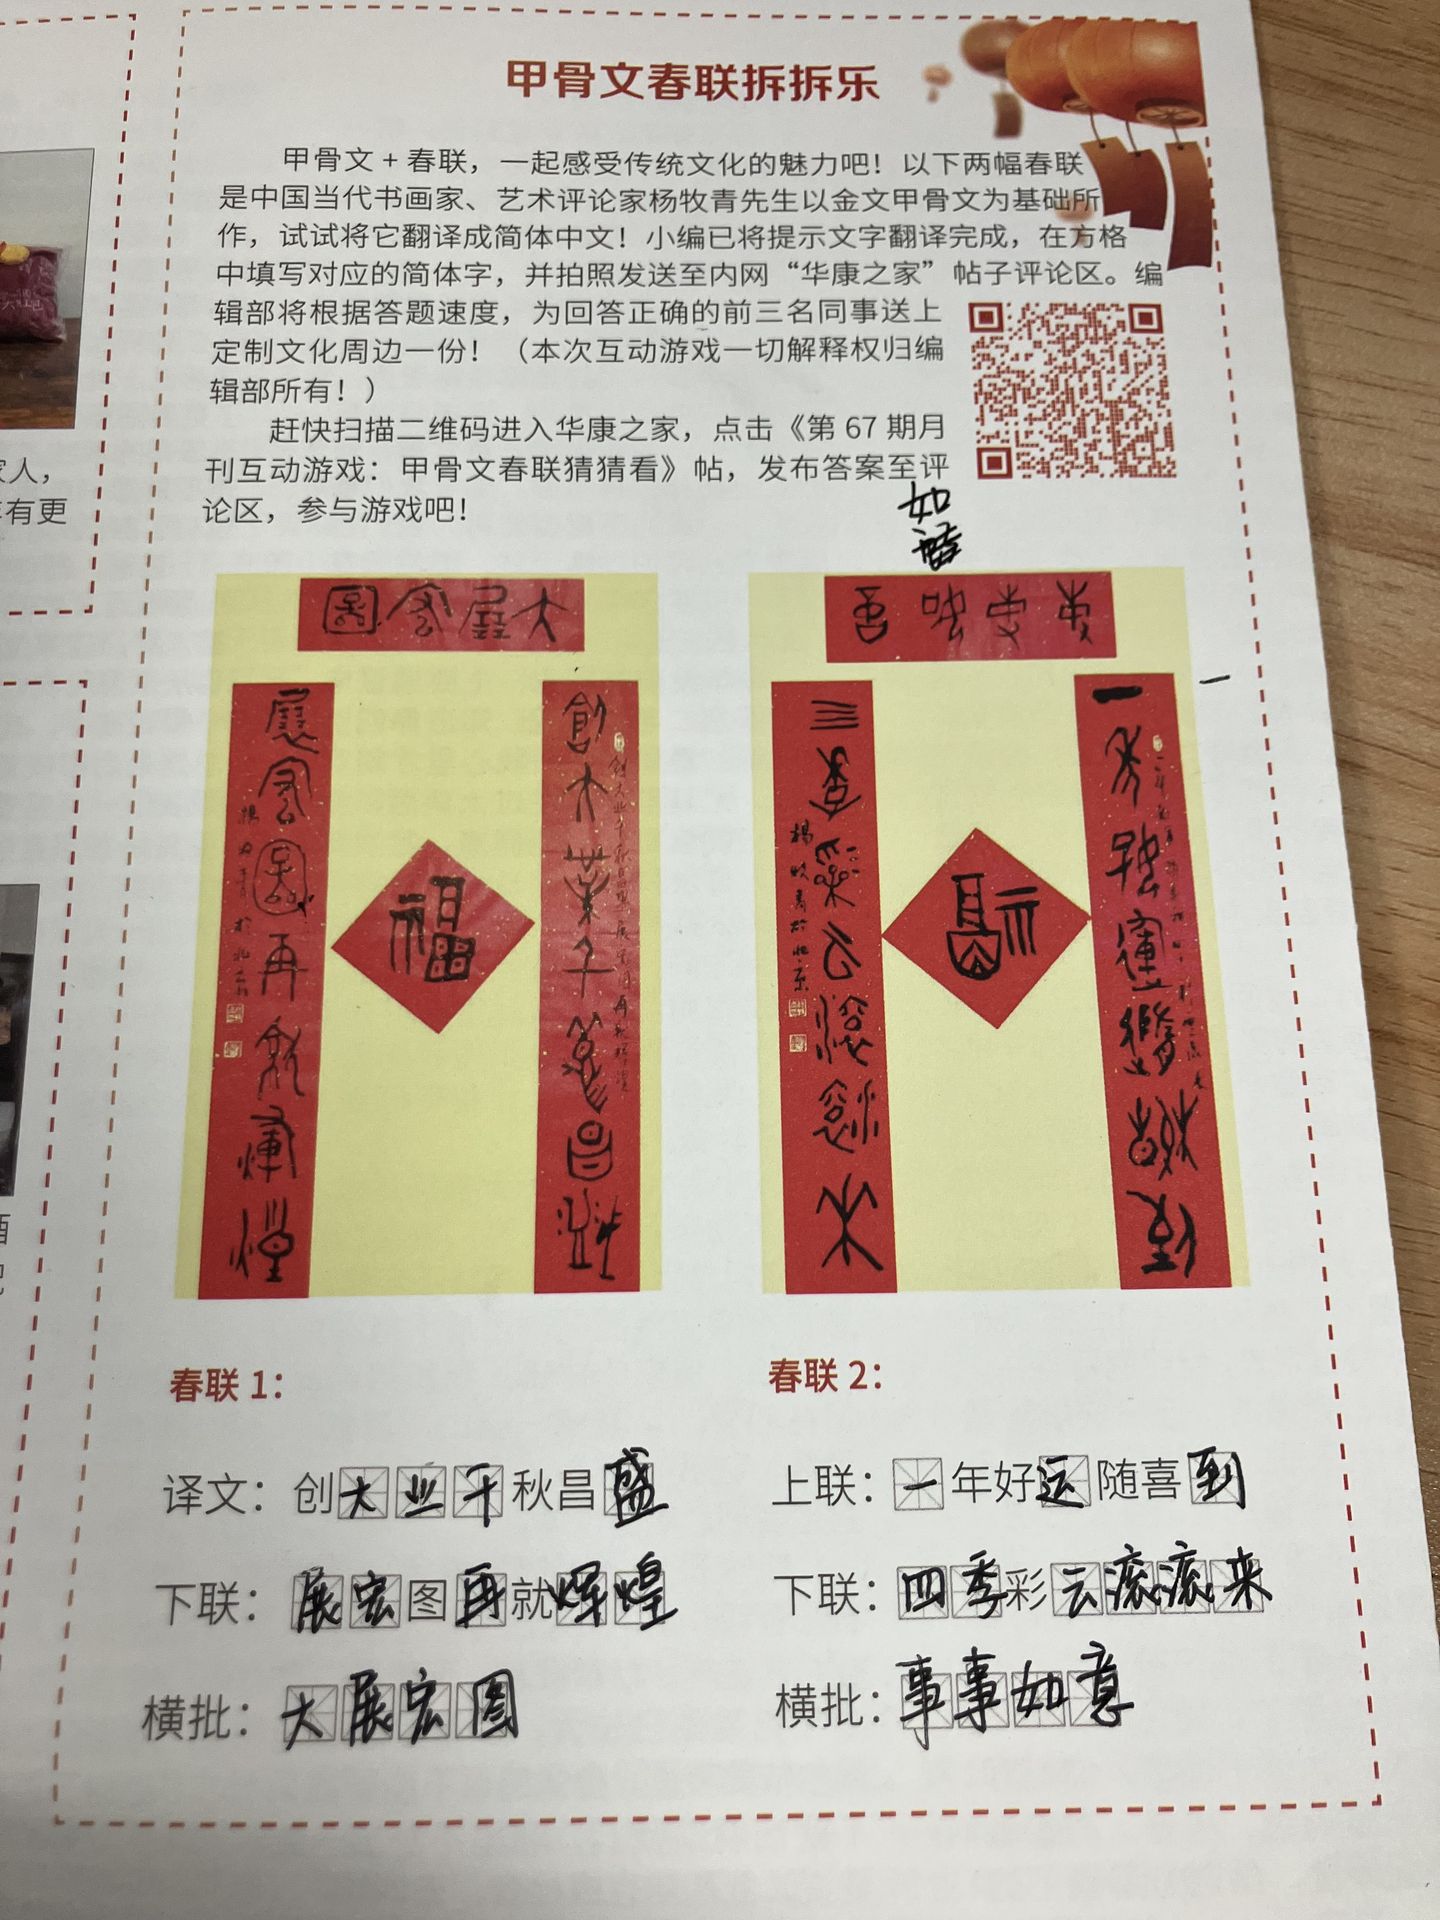 甲骨文春联拆拆乐
甲骨文 + 春联，一起感受传统文化的魅力吧！以下两幅春联
是中国当代书画家、艺术评论家杨牧青先生以金文甲骨文为基础所
作，试试将它翻译成简体中文！小编已将提示文字翻译完成，在方格
中填写对应的简体字，并拍照发送至内网“华康之家”帖子评论区。编
辑部将根据答题速度，为回答正确的前三名同事送上
定制文化周边一份！（本次互动游戏一切解释权归编
辑部所有！）
赶快扫描二维码进入华康之家，点击《第 67 期月
刊互动游戏：甲骨文春联猜猜看》帖，发布答案至评
论区，参与游戏吧！
家人，
有更
如
一
大展宏图
創大業千秋昌盛
展宏图再就輝煌
福
事事如意
一年好運隨喜到
三季彩云滚滚来
福
春联 1：
译文：创大业千秋昌盛
下联：展宏图再就辉煌
横批：大展宏图
春联 2：
上联：一年好运随喜到
下联：四季彩云滚滚来
横批：事事如意